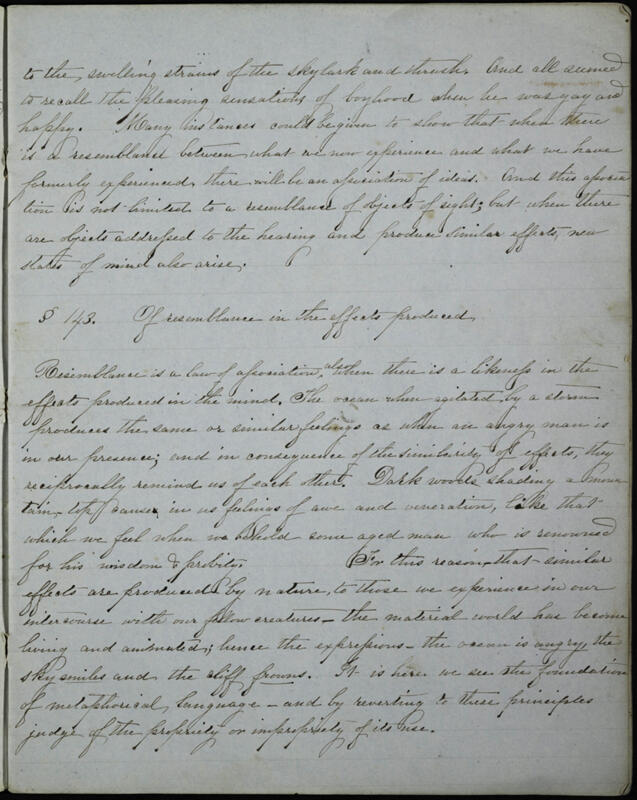 to the swelling strains of the skylark and thrush. And all seemed
to recall the pleasing sensations of boyhood when he was gay and
happy. Many instances could be given to show that when there
is a resemblance between what we now experience and what we have
formerly experienced, there will be an association of ideas. And this associa
tion is not limited to a resemblance of objects of sight; but when there
are objects addressed to the hearing and produce similar effects, new
states of mind also arise.
§ 143. Of resemblance in the effects produced
Resemblance is a law of association, also when there is a likeness in the
effects produced in the mind. The ocean when agitated by a storm
produces the same or similar feelings as when an angry man is
in our presence; and in consequence of the similarity of effects, they
reciprocally remind us of each other. Dark woods shading a moun
tain-top cause in us feelings of awe and veneration, like that
which we feel when we behold some aged man who is renowned
for his wisdom & probity. For this reason—that similar
effects are produced by nature, to those we experience in our
intercourse with our fellow creatures—the material world has become
living and animated; hence the expressions—the ocean is angry, the
sky smiles and the cliff frowns. It is here we see the foundation
of metaphorical language—and by reverting to these principles
judge of the propriety or impropriety of its use.